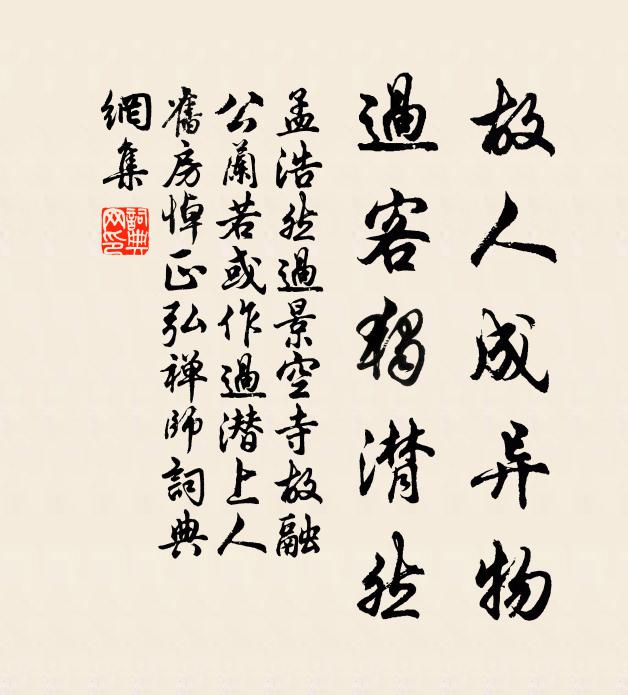 故人成异物
過客獨潸然
孟浩然過景空寺故融
公蘭若或作過潛上人
舊房悼正弘禅師詞典
網集
詞典
网印